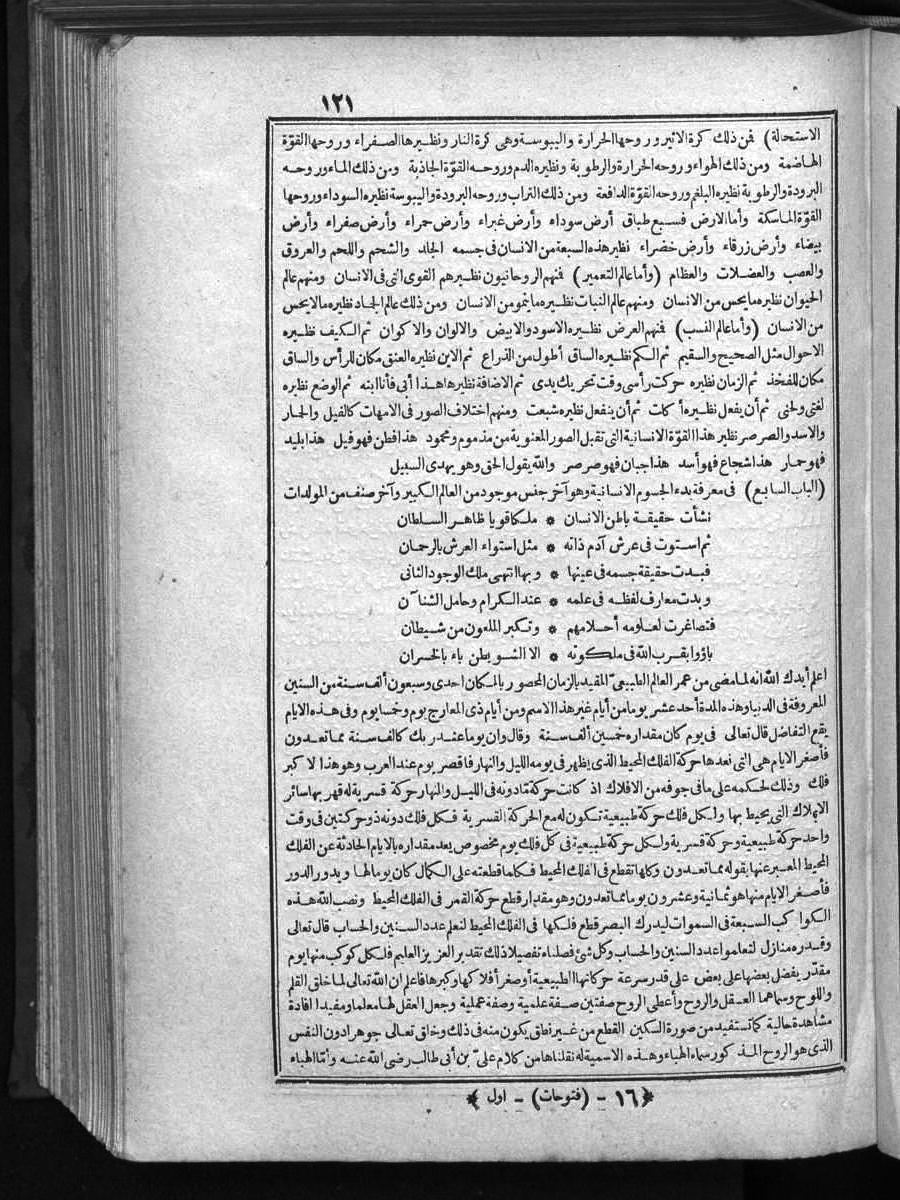 ١٢١
الاستحالة) فمن ذلك كرة الاثير وروحها الحرارة واليبوسة وهى كرة النار ونظيرها الصفراء وروحها القوّة
الهاضمة ومن ذلك الهواء وروحه الحرارة والرطوبة ونظيره الدم وروحه القوّة الجاذبة ومن ذلك الماء وروحه
البرودة والرطوبة نظيره البلغم وروحه القوّة الدافعة ومن ذلك التراب وروحه البرودة واليبوسة نظيره السوداء وروحها
القوّة الماسكة وأما الارض فسبع طباق أرض سوداء وأرض غبراء وأرض حمراء وأرض صفراء وأرض
بيضاء وأرض زرقاء وأرض خضراء نظير هذه السبعة من الانسان فى جسمه الجلد والشحم واللحم والعروق
والعصب والعضلات والعظام (وأما عالم التعمير) فنهم الروحانيون نظيرهم القوى التى فى الانسان ومنهم عالم
الحيوان نظيره ما يحس من الانسان ومنهم عالم النبات نظيره ما ينمو من الانسان ومن ذلك عالم الجماد نظيره ما لا يحس
من الانسان (وأما عالم النسب) فنهم العرض نظيره الاسود والابيض والالوان والاكوان ثم الكيف نظيره
الاحوال مثل الصحيح والسقيم ثم الكم نظيره الساق أطول من الذراع ثم الاين نظيره العنق مكان للرأس والساق
مكان للفخذ ثم الزمان نظيره حركت رأسى وقت تحريك يدى ثم الاضافة نظيرها هذا أبى فأنا ابنه ثم الوضع نظيره
لغتى ولحنى ثم أن يفعل نظيره أكلت ثم أن ينفعل نظيره شبعت ومنهم اختلاف الصور فى الامهات كالفيل والحمار
والاسد والصرصر نظير هذا القوّة الانسانية التى تقبل الصور المعنوية من مذموم ومحمود هذا فطن فهو فيل هذا بليد
فهو حمار هذا شجاع فهو أسد هذا جبان فهو صرصر والله يقول الحق وهو يهدى السبيل
(الباب السابع) فى معرفة بدء الجسوم الانسانية وهو آخر جنس موجود من العالم الكبير وآخر صنف من المولدات
نشأت حقيقة باطن الانسان * ملكا قويا ظاهر السلطان
ثم استوت فى عرش آدم ذاته * مثل استواء العرش بالرحمان
فبدت حقيقة جسمه فى عينها * وبها انتهى ملك الوجود الثانى
وبدت معارف لفظه فى علمه * عند الكرام وحامل الشنآن
فتصاغرت لعلومه أحلامهم * وتكبر الملعون من شيطان
باؤوا بقرب الله فى ملكوته * الا الشويطن باء بالخسران
اعلم أيدك الله انه لما مضى من عمر العالم الطبيعىّ المقيد بالزمان المحصور بالمكان احدى وسبعون ألف سنة من السنين
المعروفة فى الدنيا وهذه المدة أحد عشر يوما من أيام غير هذا الاسم ومن أيام ذى المعارج يوم وخمسا يوم وفى هذه الايام
يقع التفاضل قال تعالى فى يوم كان مقداره خمسين ألف سنة وقال وان يوما عند ربك كالف سنة مما تعدون
فأصغر الايام هى التى نعدها حركة الفلك المحيط الذى يظهر فى يومه الليل والنهار فاقصر يوم عند العرب وهو هذا لا كبر
فلك وذلك لحكمه على ما فى جوفه من الافلاك اذ كانت حركة ما دونه فى الليل والنهار حركة قسرية له قهر بها سائر
الافلاك التى يحيط بها ولكل فلك حركة طبيعية تكون له مع الحركة القسرية فكل فلك دونه ذو حركتين فى وقت
واحد حركة طبيعية وحركة قسرية ولكل حركة طبيعية فى كل فلك يوم مخصوص يعد مقداره بالايام الحادثة عن الفلك
المحيط المعبر عنها بقوله مما تعدون وكلها تقطع فى الفلك المحيط فكلما قطعته على الكمال كان يوما لها ويدور الدور
فأصغر الايام منها هو ثمانية وعشرون يوما مما تعدون وهو مقدار قطع حركة القمر فى الفلك المحيط ونصب الله هذه
الكواكب السبعة فى السموات ليدرك البصر قطع فلكها فى الفلك المحيط لنعلم عدد السنين والحساب قال تعالى
وقدره منازل لتعلموا عدد السنين والحساب وكل شئ فصلناه تفصيلا ذلك تقدير العزيز العليم فلكل كوكب منها يوم
مقدّر يفضل بعضها على بعض على قدر سرعة حركاتها الطبيعية أو صغر أفلاكها وكبرها فاعلم ان الله تعالى لما خلق القلم
واللوح وسماهما العقل والروح وأعطى الروح صفتين صفة علمية وصفة عملية وجعل العقل لها معلما ومفيدا افادة
مشاهدة حالية كما تستفيد من صورة السكين القطع من غير نطق يكون منه فى ذلك وخلق تعالى جوهرا دون النفس
الذى هو الروح المذكور سماه الهباء وهذه الاسمية له نقلناها من كلام علىّ بن أبى طالب رضى الله عنه وأما الهباء
﴿١٦ - (فتوحات) - اول﴾